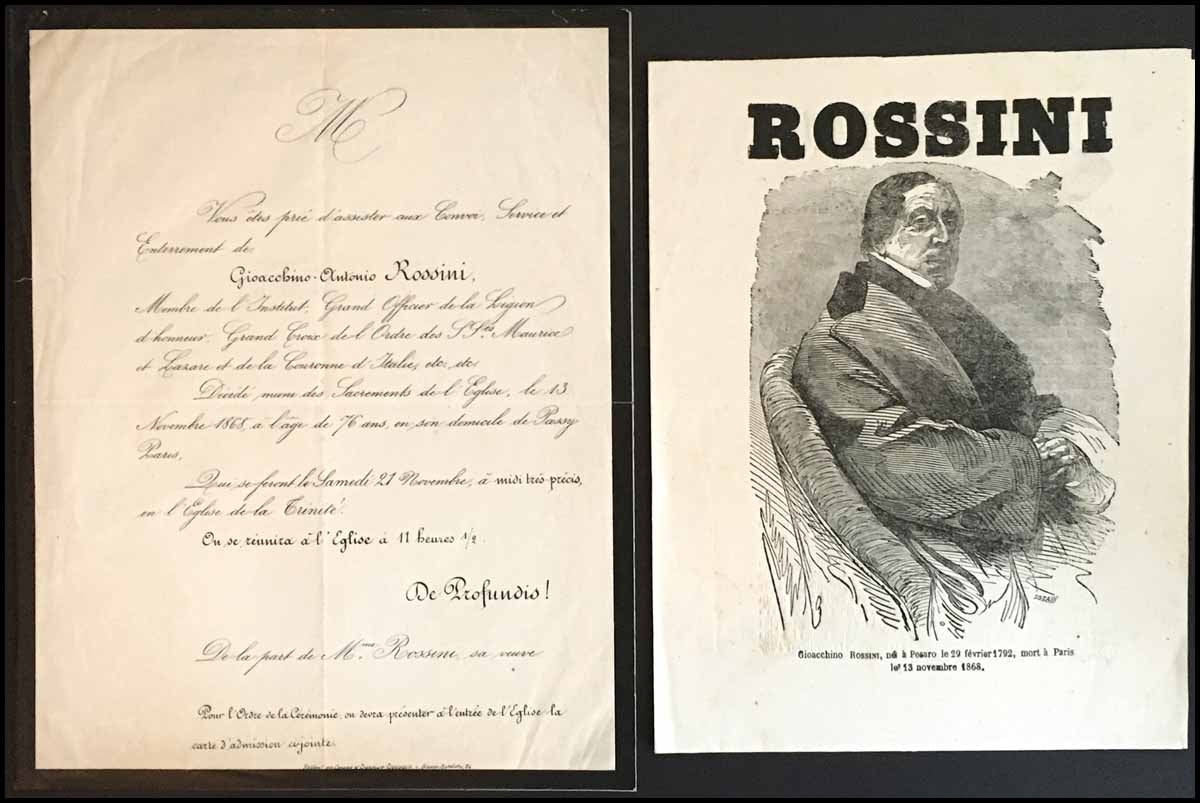 M
Vous êtes prié d'assister aux Convoi, Service et
Enterrement de
Gioacchino-Antonio Rossini,
Membre de l'Institut, Grand Officier de la Légion
d'honneur, Grand Croix de l'Ordre des S.Sts Maurice
et Lazare et de la Couronne d'Italie, etc, etc.
Décédé muni des Sacrements de l'Eglise, le 13
Novembre 1868, à l'âge de 76 ans, en son domicile de Passy
Paris,
Qui se feront le Samedi 21 Novembre, à midi très-précis,
en l'Eglise de la Trinité.
On se réunira à l'Eglise à 11 heures 1/2.
De Profundis!
De la part de Mme Rossini, sa veuve
Pour l'Ordre de la Cérémonie, on devra présenter à l'entrée de l'Eglise la
carte d'admission ci-jointe.
ROSSINI
Gioacchino ROSSINI, né à Pesaro le 29 février 1792, mort à Paris
le 13 novembre 1868.